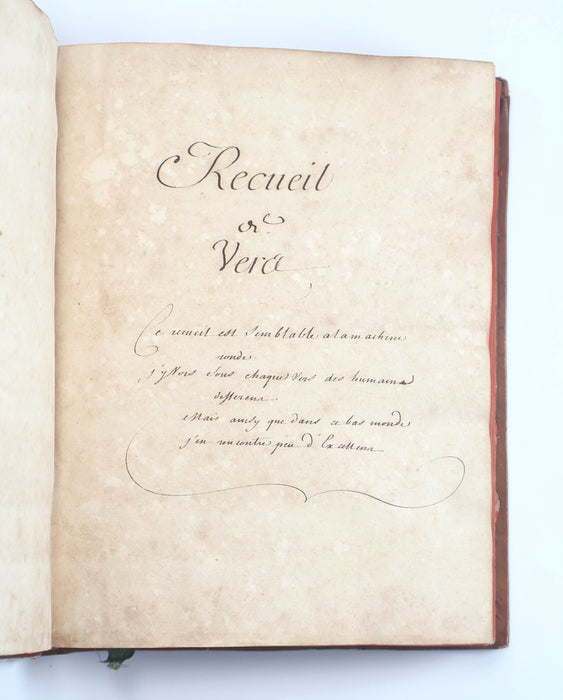 Recueil
de
Vers
Ce recueil est semblable a la machine
ronde
j'y vois sous chaque vers des humains
differens
Mais ainsy que dans ce bas monde
j'en rencontre peu d'Excellens